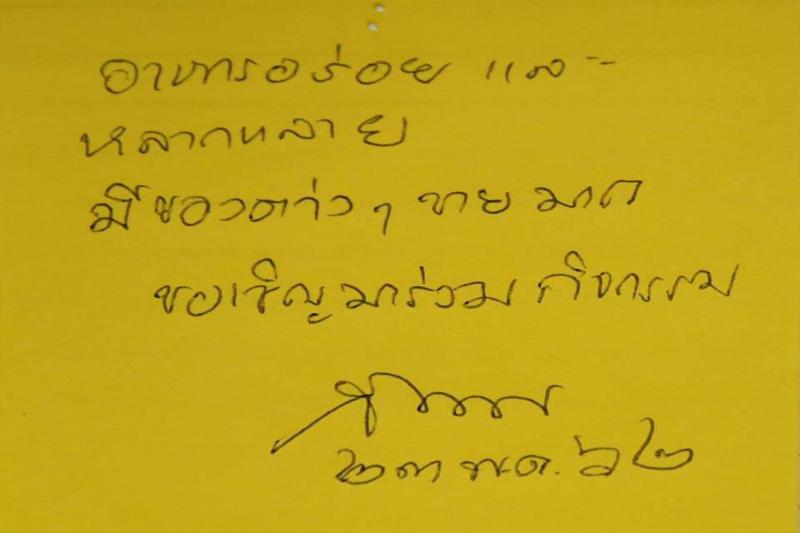 อาหารอร่อย และ
หลากหลาย
มีของต่าง ๆ ขายมาก
ขอเชิญมาร่วมกิจกรรม
๒๓ พ.ค. ๖๒